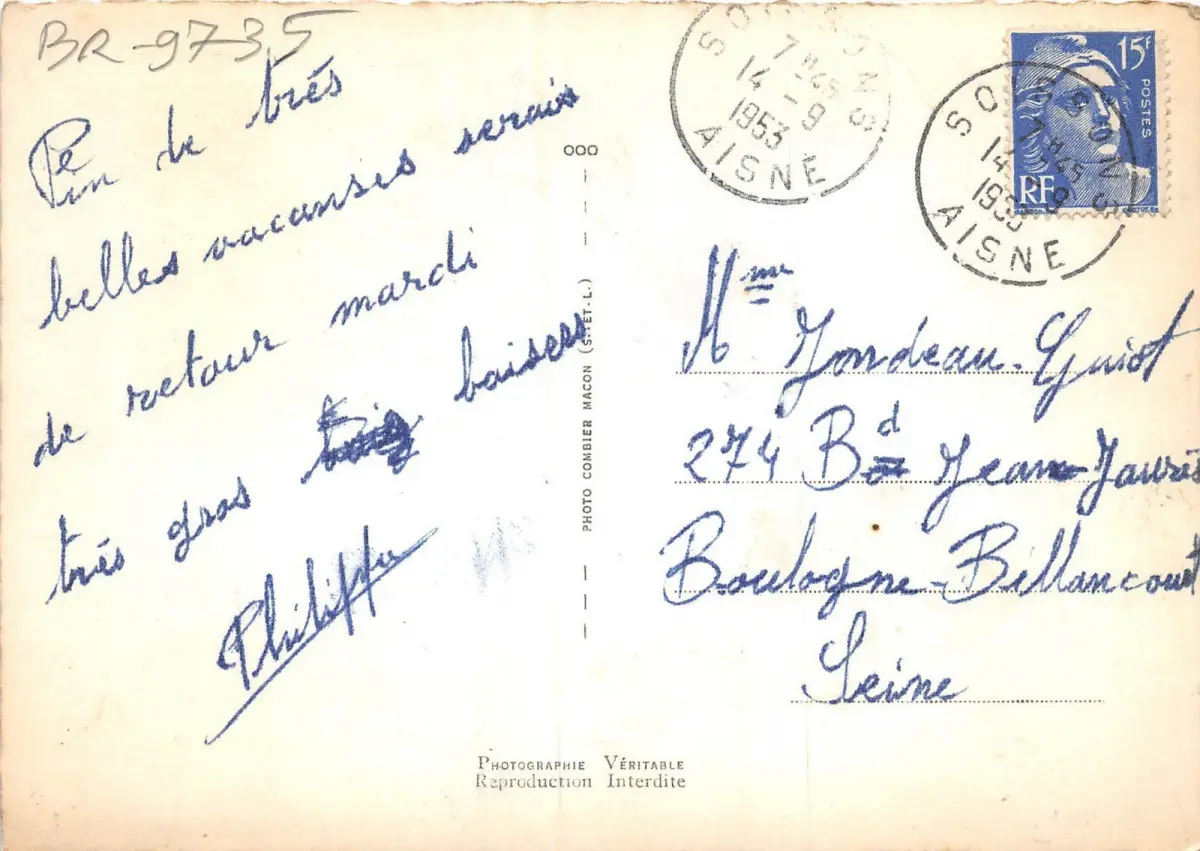 BR-9735
de très
belles vacanses serais
de retour mardi
très gros baisers
Philippe
ooo
PHOTO COMBIER MACON (S.-ET-L.)
SOISSONS
7H45
14-9
1953
AISNE
15F
POSTES
RF
SOISSONS
7H45
14-9
1953
AISNE
Mme Jondeau-Guiot
274 Bd Jean-Jaurès
Boulogne-Billancourt
Seine
PHOTOGRAPHIE VÉRITABLE
Reproduction Interdite